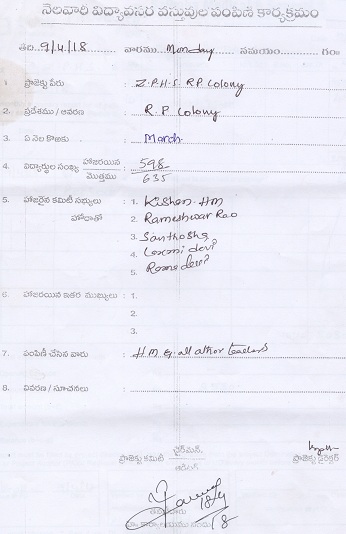 నెలవారి విద్యావసర వస్తువుల పంపిణి కార్యక్రమం
తేది. 9/4/18 వారము Monday సమయం గం॥
1. ప్రాజెక్టు పేరు : Z.P.H.S. R.P. Colony
2. ప్రదేశము / ఆవరణ : R.P Colony
3. ఏ నెల కొఱకు : March
4. విద్యార్థుల సంఖ్య హాజరయిన : 598
మొత్తము 635
5. హాజరైన కమిటీ సభ్యులు : 1. Kishan. HM
హోదాతో 2. Rameshwar Rao
3. Santhosha
4. Laxmi devi
5. Rama devi
6. హాజరయిన ఇతర ముఖ్యులు : 1.
2.
3.
7. పంపిణి చేసిన వారు : H.M & all other teachers
8. వివరణ / సూచనలు :
ప్రాజెక్టు కమిటీ ఛైర్మన్. ప్రాజెక్టు డైరెక్టర్
ఆడిటర్
18/4/18